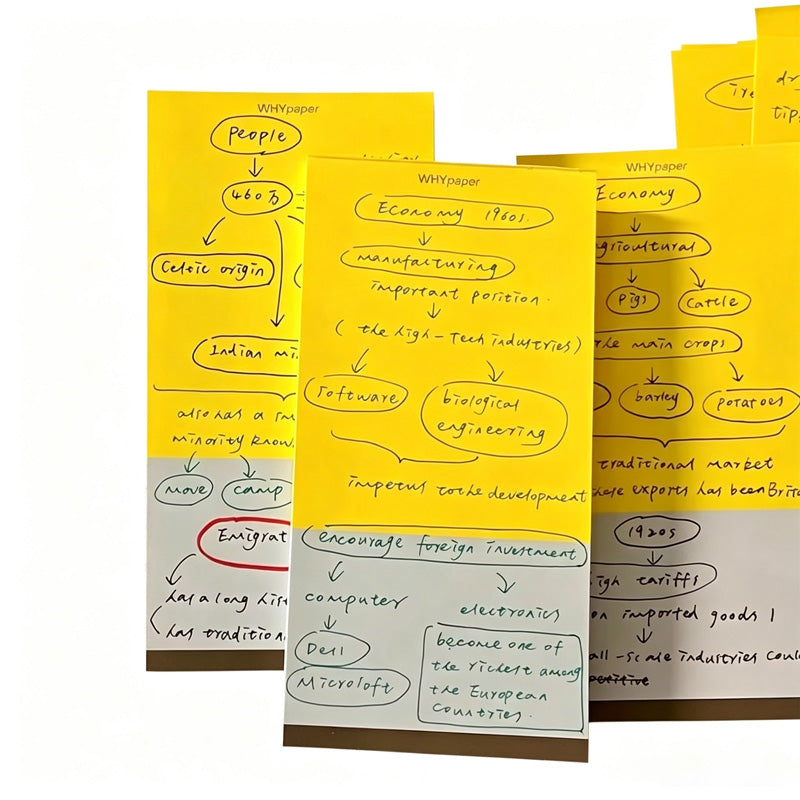 WHYpaper
people
460万
Celtic origin
Indian
also has a
minority
move
camp
has a long
has tradition
WHYpaper
Economy 1960s.
manufacturing
important position.
( the high-tech industries )
software
biological
engineering
impetus to the development
encourage foreign investment
computer
electronics
Dell
Microsoft
become one of
the richest among
the European
countries.
WHYpaper
Economy
agricultural
pigs
cattle
the main crops
barley
potatoes
traditional market
these exports has been
1920s
high tariffs
on imported goods
-scale industries
tips